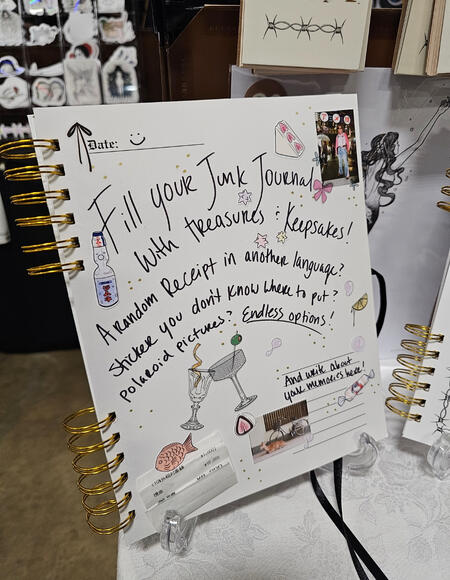 Date:
Fill your Junk Journal
With treasures & Keepsakes!
A random Receipt in another language?
Sticker you don't know where to put?
polaroid pictures? Endless options!
And write about
your memories here!